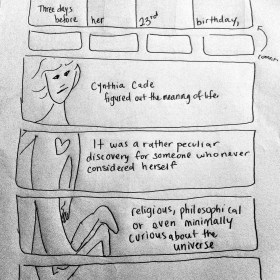 Three days before
her
23rd
birthday,
Cynthia Cade
figured out the meaning of life.
It was a rather peculiar
discovery for someone who never
considered herself
religious, philosophical
or even minimally
curious about the
universe